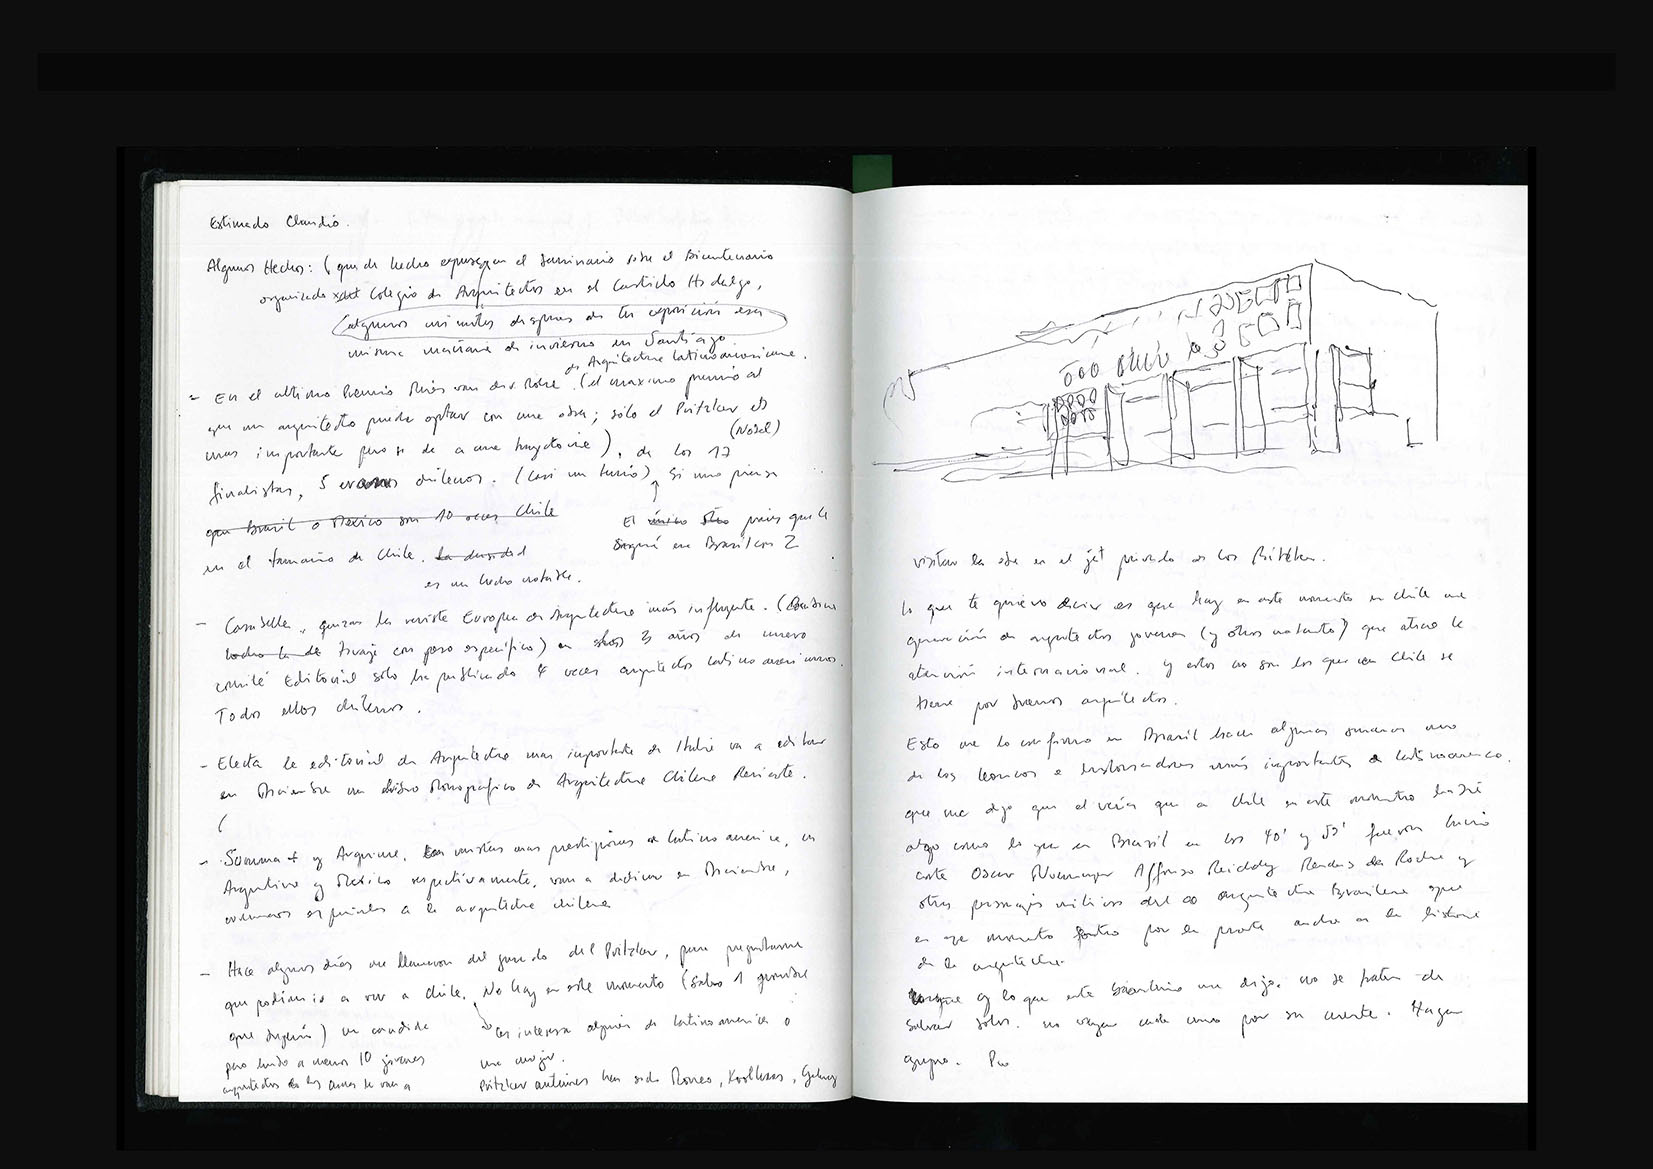 Estimado Claudio.
Algunos Hechos: (que de hecho expuse en el Seminario sobre el Bicentenario
organizado x el Colegio de Arquitectos en el Castillo Hidalgo,
(algunos minutos despues de tu exposición esa
misma mañana de invierno en Santiago.
de Arquitectura latinoamericana.
- En el ultimo Premio Mies van der Rohe (el maximo premio al
que un arquitecto puede optar con una obra; sólo el Pritzker es
mas importante pero se da a una trayectoria), de los 17
(Nobel)
finalistas, 5 eramos chilenos. (casi un tercio) Si uno piensa
que Brasil o Mexico son 10 veces Chile
en el tamaño de Chile. la
es un hecho notable.
El único otro país que le
seguía era Brasil con 2
- Casabella, quizas la revista Europea de Arquitectura más influyente. (
con peso específico) en sus 3 años de nuevo
comité Editorial sólo ha publicado 4 veces arquitectos latinoamericanos.
Todos ellos chilenos.
- Electa la editorial de Arquitectura mas importante de Italia va a editar
en Diciembre un libro Monografico de Arquitectura Chilena Reciente.
(
- Summa + y Arquine, las revistas mas prestigiosas de latino america, en
Argentina y Mexico respectivamente, van a dedicar en Diciembre,
numeros especiales a la arquitectura chilena
- Hace algunos días me llamaron del jurado del Pritzker, para preguntarme
que podían ir a ver a Chile. No hay en este momento (salvo 1
que ) un candidato
pero hubo a menos 10 jóvenes
arquitectos de los cuales se van a
les interesa alguien de latinoamerica o
una mujer.
Pritzker anteriores han sido Moneo, Koolhaas, Gehry
visitar la obra en el jet privado de los Pritzker.
lo que te quiero decir es que hay en este momento en chile una
generación de arquitectos jovenes (y otros no tanto) que atrae la
atención internacional. y estos no son los que en Chile se
tiene por buenos arquitectos.
Esto me lo confirmo en Brasil hace algunas semanas uno
de los teoricos e historiadores más importantes de latinoamerica.
que me dijo que el veía que en Chile en este momento había
algo como lo que en Brasil en los 40' y 50' fueron Lucio
costa Oscar Niemeyer Affonso Reiddy Mendes da Rocha y
otros personajes miticos de la arquitectura Brasilera que
en ese momento entro por la puerta ancha de la historia
de la arquitectura.
y lo que este brasilero me dijo. no se traten de
salvar solos. no vayan cada uno por su cuenta. Hagan
grupo.